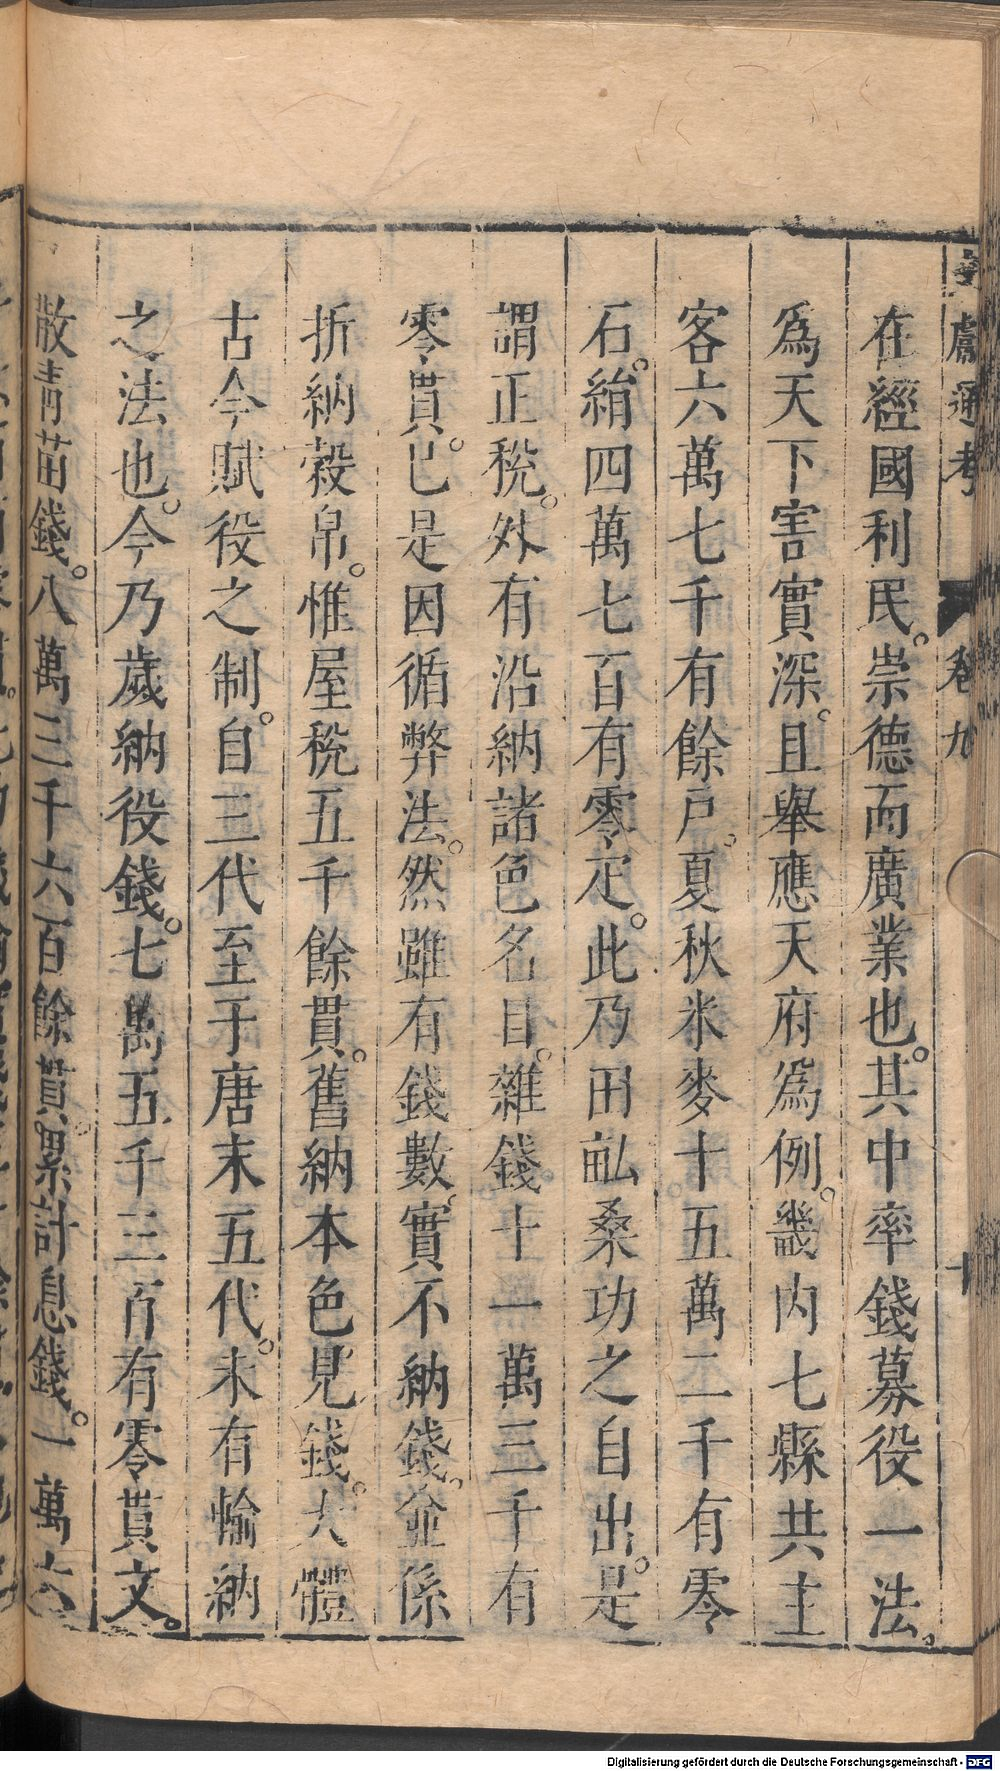 獻通考 卷九 十
在經國利民。崇德而廣業也。其中率錢募役一法。
爲天下害實深。且舉應天府爲例。畿內七縣共主
客六萬七千有餘戶。夏秋米麥十五萬二千有零
石。絹四萬七百有零疋。此乃田畝桑功之自出。是
謂正稅。外有沿納諸色名目。雜錢十一萬三千有
零貫。已是因循弊法。然雖有錢數。實不納錢。並係
折納穀帛。惟屋稅五千餘貫。舊納本色見錢。大體
古今賦役之制。自三代至于唐末五代。未有輸納
之法也。今乃歲納役錢。七萬五千三百有零貫文。
散青苗錢。八萬三千六百餘貫。累計息錢。一萬六
Digitalisierung gefördert durch die Deutsche Forschungsgemeinschaft - DFG